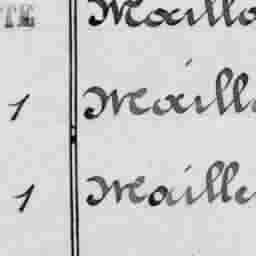 TE Maillo
1 Maill
1 Maille